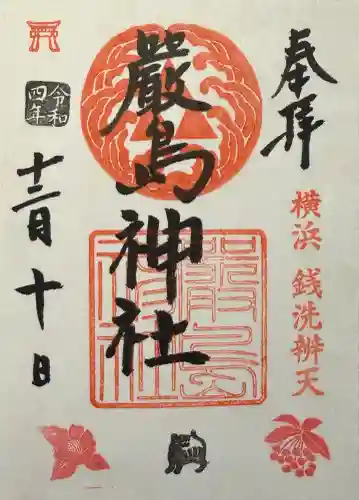 奉拝
横浜 銭洗辨天
嚴島神社
嚴島神社
令和四年
十二月十日